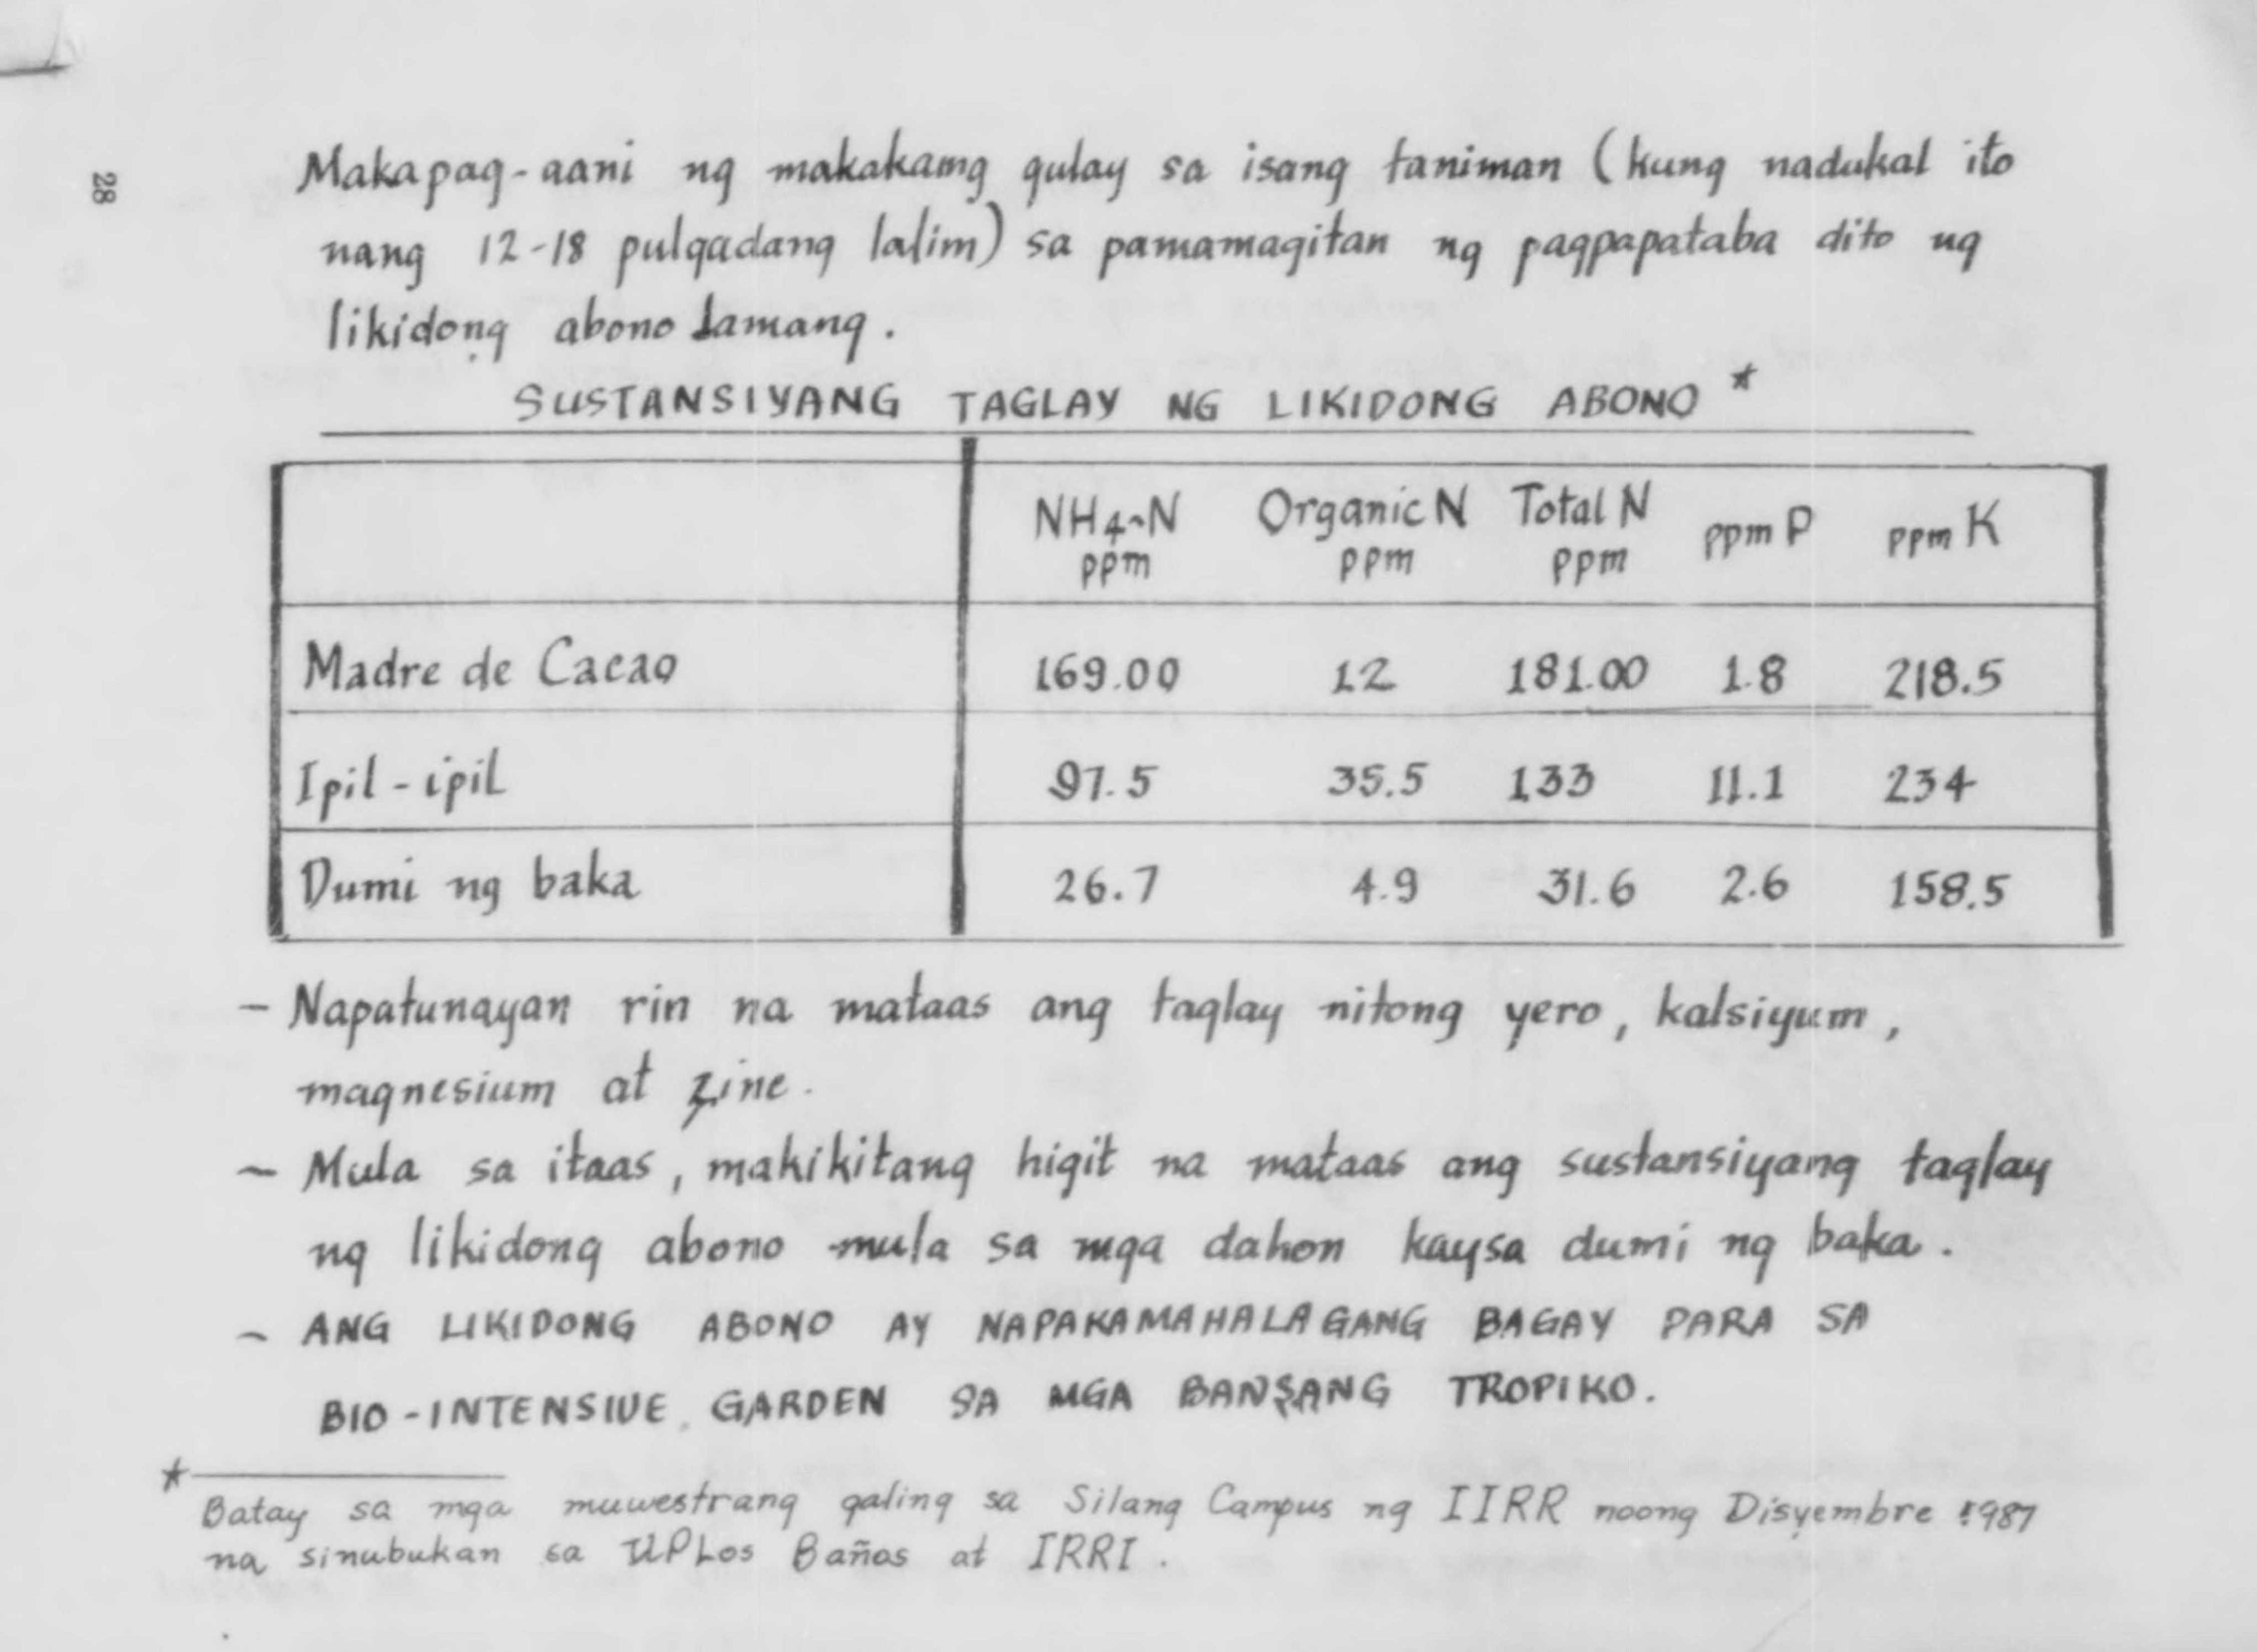 28
Makapag-aani ng makakaing gulay sa isang taniman (kung nadukal ito
nang 12-18 pulgadang lalim) sa pamamagitan ng pagpapataba dito ng
likidong abono lamang.
SUSTANSIYANG TAGLAY NG LIKIDONG ABONO *
NH4-N Organic N Total N ppm P ppm K
ppm ppm ppm
Madre de Cacao 169.00 12 181.00 1.8 218.5
Ipil-ipil 97.5 35.5 133 11.1 234
Dumi ng baka 26.7 4.9 31.6 2.6 158.5
- Napatunayan rin na mataas ang taglay nitong yero, kalsiyum,
magnesium at zinc.
- Mula sa itaas, makikitang higit na mataas ang sustansiyang taglay
ng likidong abono mula sa mga dahon kaysa dumi ng baka.
- ANG LIKIDONG ABONO AY NAPAKAMAHALAGANG BAGAY PARA SA
BIO-INTENSIVE GARDEN SA MGA BANSANG TROPIKO.
* Batay sa mga muwestrang galing sa Silang Campus ng IIRR noong Disyembre 1987
na sinubukan sa UPLos Baños at IRRI.